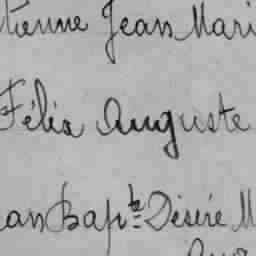 tienne Jean Mari
Félix Auguste
ean Bapte Désiré M